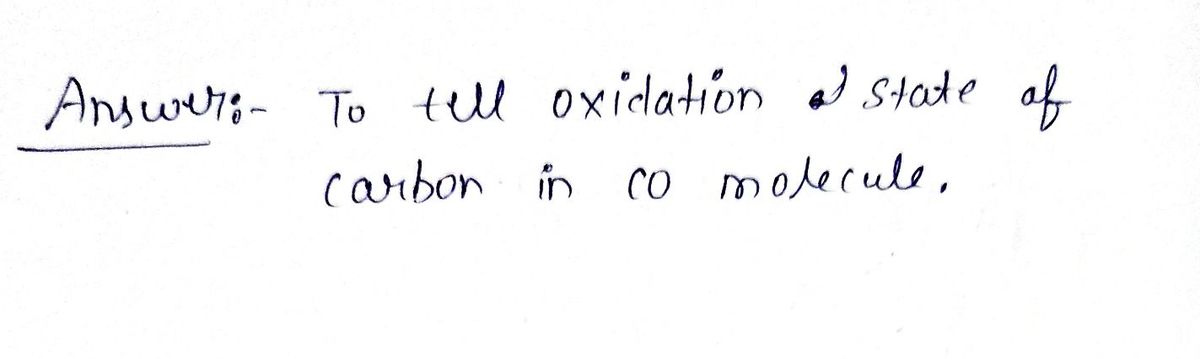 Answer:- To tell oxidation state of
carbon in CO molecule.